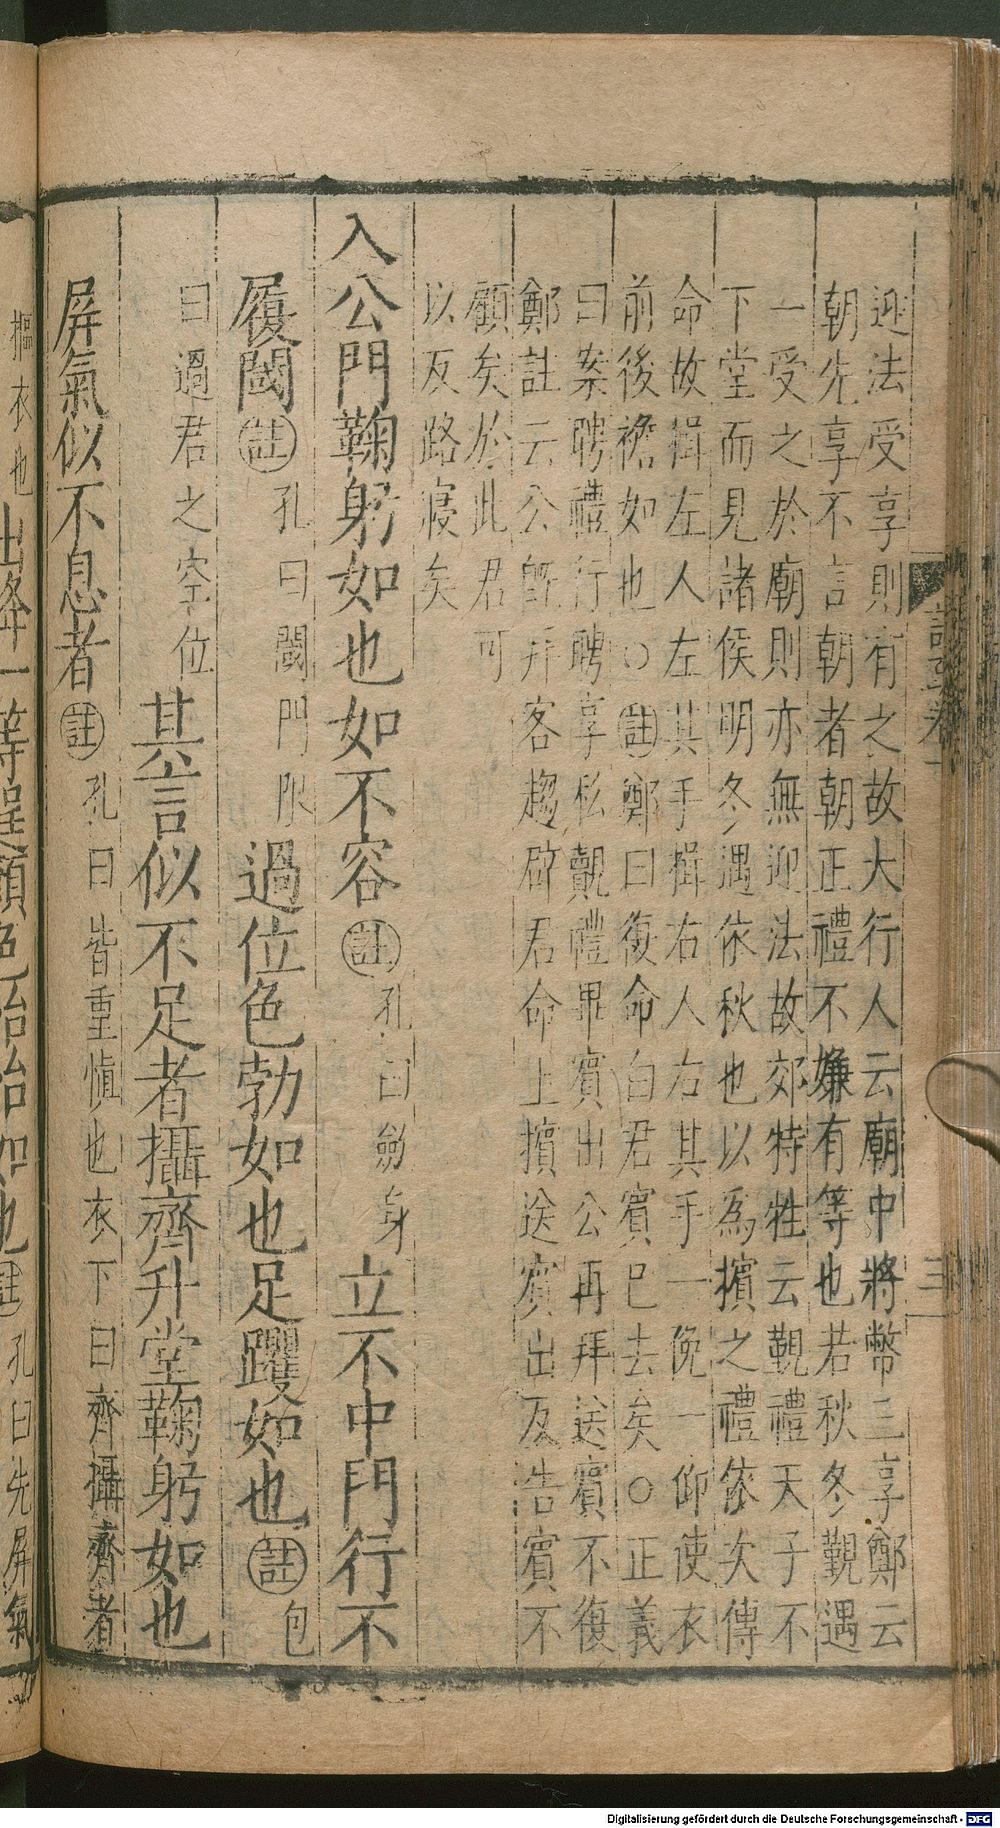 迎法受享則有之故大行人云廟中將幣三享鄭云
朝先享不言朝朝者朝正禮不嫌有等也若秋冬覲遇
一受之於廟則亦無迎法故郊特牲云覲禮天子不
下堂而見諸侯明冬遇依秋也以為擯之禮依次傳
命故揖左人左其手揖右人右其手一俛一仰使衣
前後襜如也○註鄭曰復命白君賓已去矣○正義
曰案聘禮行聘享私覿禮畢賓出公再拜送賓不復
鄭註云公既拜客趨辟君命上擯送賓出反告賓不
顧矣於此君可
以反路寢矣
入公門鞠躬如也如不容註孔曰斂身立不中門行不
履閾註孔曰閾門限過位色勃如也足躩如也註包
曰過君之空位其言似不足者攝齊升堂鞠躬如也
屏氣似不息者註孔曰皆重慎也衣下曰齊攝齊者
摳衣也出降一等逞顏色怡怡如也註孔曰先屏氣
三
Digitalisierung gefördert durch die Deutsche Forschungsgemeinschaft - DFG